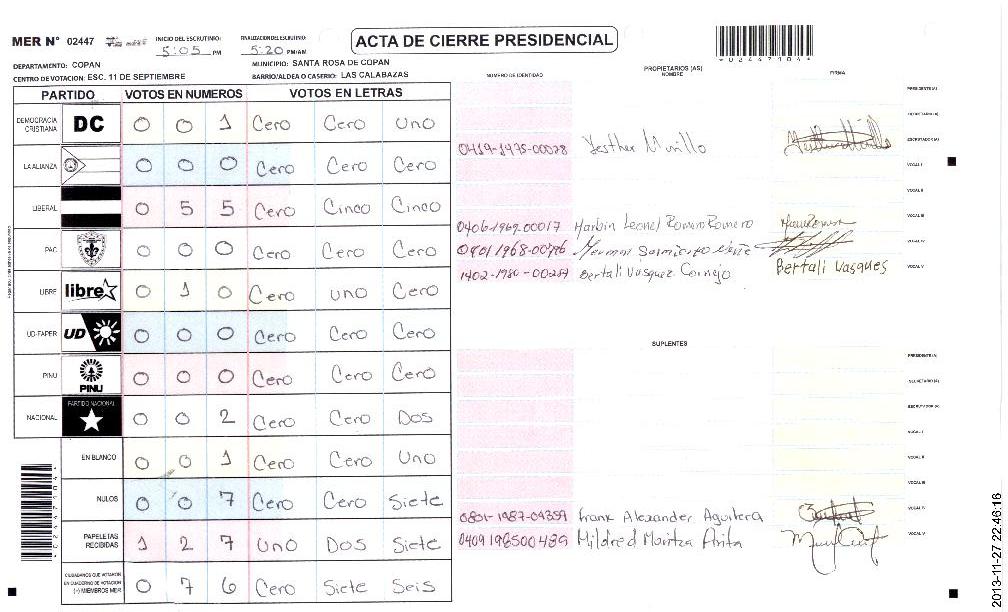 MER N° 02447
INICIO DEL ESCRUTINIO: 5:05 PM
FINALIZACION ESCRUTINIO: 5:20 PM/AM
ACTA DE CIERRE PRESIDENCIAL
DEPARTAMENTO: COPAN
MUNICIPIO: SANTA ROSA DE COPAN
CENTRO DE VOTACION: ESC. 11 DE SEPTIEMBRE
BARRIO/ALDEA O CASERIO: LAS CALABAZAS
PARTIDO VOTOS EN NUMEROS VOTOS EN LETRAS
DEMOCRACIA CRISTIANA DC 0 0 1 Cero Cero Uno
LA ALIANZA 0 0 0 Cero Cero Cero
LIBERAL 0 5 5 Cero Cinco Cinco
PAC 0 0 0 Cero Cero Cero
LIBRE libre 0 1 0 Cero uno Cero
UD-FAPER UD 0 0 0 Cero Cero Cero
PINU PINU 0 0 0 Cero Cero Cero
NACIONAL PARTIDO NACIONAL 0 0 2 Cero Cero Dos
EN BLANCO 0 0 1 Cero Cero Uno
NULOS 0 0 7 Cero Cero Siete
PAPELETAS RECIBIDAS 1 2 7 Uno Dos Siete
CIUDADANOS QUE VOTARON EN CUADERNO DE VOTACION (-) MIEMBROS MER 0 7 6 Cero Siete Seis
NUMERO DE IDENTIDAD
PROPIETARIOS (AS)
NOMBRE
FIRMA
PRESIDENTE (A)
SECRETARIO (A)
ESCRUTADOR (A)
0419-1975-00028 Yesther Murillo
VOCAL I
VOCAL II
VOCAL III
0406-1969-00017 Harbin Leonel Romero Romero
VOCAL IV
Sarmiento
VOCAL V
1402-1980-00289 Bertali Vasquez Cornejo Bertali Vasques
SUPLENTES
PRESIDENTE (A)
SECRETARIO (A)
ESCRUTADOR (A)
VOCAL I
VOCAL II
VOCAL III
VOCAL IV
0801-1987-04359 Frank Alexander Aguilera
VOCAL V
0409198500489 Mildred Maritza
2013-11-27 22:46:16